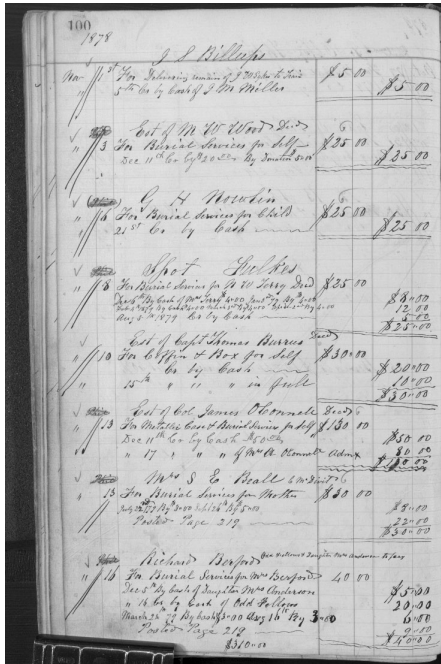 100
1878
J S Billups
Nov 1st For Delivering remains of J to Train $5.00
5th Cr by Cash of J M Miller $5.00
Est of M W Wood Decd 6
" 3 For Burial Services for Self $25.00
Dec 11th Cr by $20.00 By Donation 5.00 $25.00
G H Nowlin 6
" 6 For Burial Services for Child $25.00
21st Cr by Cash $25.00
Spot Fulkes
" 8 For Burial Services for W Terry Decd $25.00
By Cash of Mrs Terry 4.00 By 4.00 $8.00
12.00
Aug 1879 Cr by Cash 5.00
$25.00
Est of Capt Thomas Burrus Decd
" 10 For Coffin & Box for Self $30.00
Cr by Cash $20.00
15th " " " in full 10.00
$30.00
Est of Col. James OConnell Decd 6
" 13 For Metallic Case & Burial Services for Self $130.00
Dec 11th Cr by Cash $50.00 $50.00
" 17 " " " of Mrs A. OConnell Admx 80.00
$130.00
Mrs S E Beall 6
" 13 For Burial Services for Mother $30.00
By 3.00 By 5.00 $8.00
Posted Page 219 22.00
$30.00
Richard Berford
" 16 For Burial Services for Mrs Berford 40.00
Dec 5th By Cash of Daughter Mrs Anderson $5.00
" 16 Cr by Cash of Odd Fellows 20.00
March 24th 79 By Cash $3.00 Aug 16th By 3.00 6.00
Posted Page 219 9.00
$310.00 $40.00